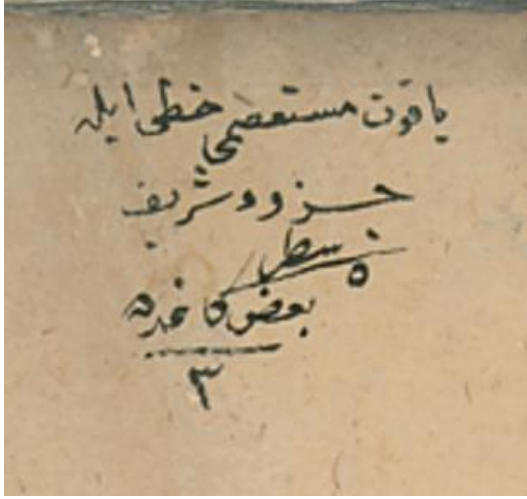 ياقوت مستعصمى خطى ايله
جزوء شريف
سطر
٥
بعض كاغده
٣